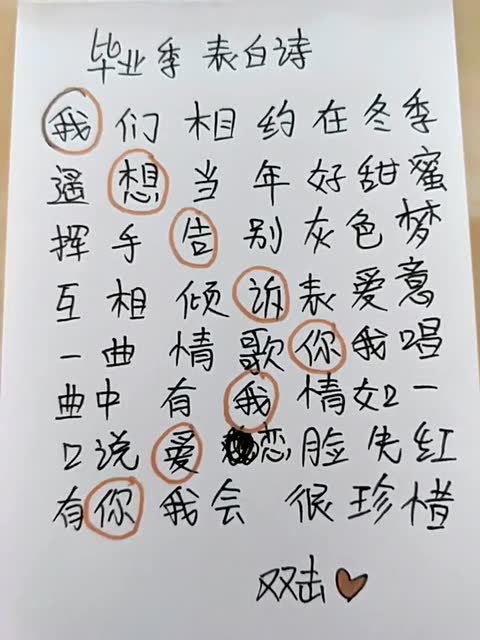 毕业季 表白诗
我们相约在冬季
遥想当年好甜蜜
挥手告别灰色梦
互相倾诉表爱意
一曲情歌你我唱
曲中有我情如一
口说爱恋脸先红
有你我会很珍惜
双击